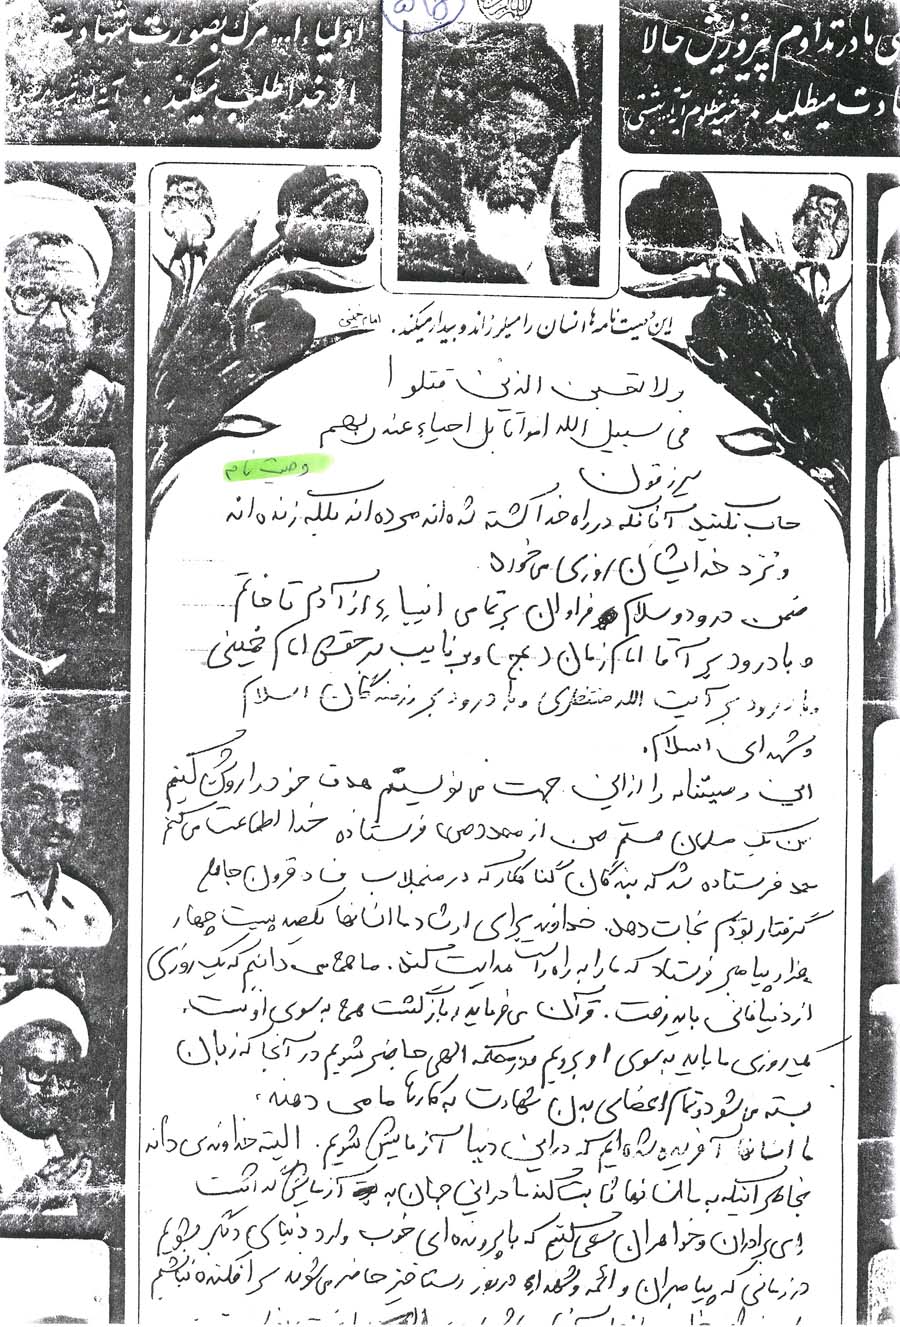 ۵۱۵
ی ما در تداوم پیروزیش حالا
ادت میطلبد . شهید مظلوم آیة بهشتی
اولیاء ا... مرگ بصورت شهادت
از خدا طلب میکند . آیة
این وصیت نامه ها انسان را میلرزاند و بیدار میکند . امام خمینی
ولا تحسبن الذین قتلوا
فی سبیل الله امواتا بل احیاء عند ربهم
یرزقون
وصیت نام
حساب نکنید آنانکه در راه خدا کشته شده اند مرده اند بلکه زنده اند
و نزد خدایشان روزی میخورد
ضمن درود و سلام فراوان بر تمامی انبیاء از آدم تا خاتم
و با درود بر آقا امام زمان (عج) و بر نایب بر حقش امام خمینی
و با درود بر آیت الله منتظری و با درود بر رزمندگان اسلام
و شهدای اسلام .
این وصیتنامه را از این جهت می نویسم هدف خود را روشن کنیم
من یک مسلمان هستم من از محمد (ص) فرستاده خدا اطاعت می کنم
محمد فرستاده شد که بندگان گناهکار که در منجلاب فساد قرون جاهلی
گرفتار بودیم نجات دهد. خداوند برای ارشاد ما انسانها یکصد بیست چهار
هزار پیامبر فرستاد که ما را به راه راست هدایت کند. ما همه می دانیم که یک روزی
از دنیا فانی باید رفت . قرآن می فرماید بازگشت همه به سوی اوست .
یک روزی ما باید به سوی او برویم در محکمه الهی حاضر شویم در آنجا که زبان
بسته می شود و تمام اعضای بدن شهادت به کارها ما می دهند ،
ما انسانها آفریده شده ایم که در این دنیا آزمایش شویم . البته خداوند می داند
بخاطر اینکه به ما انسانها ثابت کند ما در این جهان به آزمایش گذاشت
ای برادران و خواهران سعی کنیم که با پرونده ای خوب وارد دنیای دیگر بشویم
در زمانی که پیامبران و ائمه و شهداء در روز رستاخیز حاضر می شوند سرافکنده نباشیم